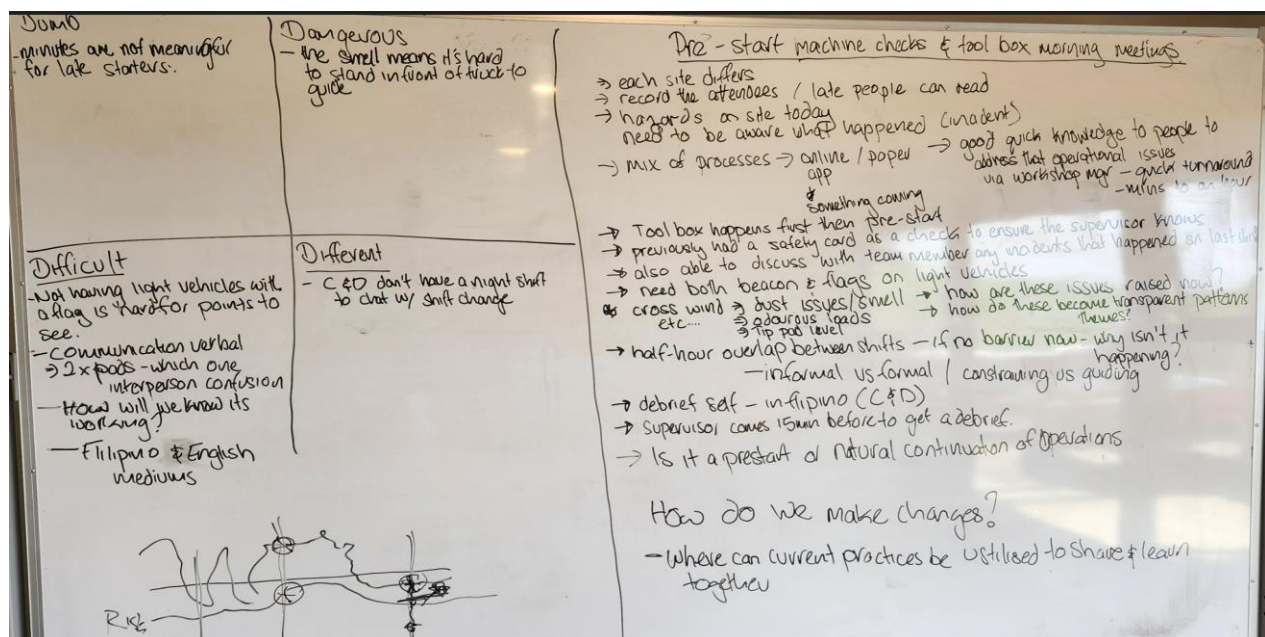 Dumb
- minutes are not meaningful
for late starters.
Dangerous
- the smell means it's hard
to stand in front of truck to
guide
Difficult
- Not having light vehicles with
a flag is hard for points to
see.
- Communication verbal
→ 2 x pods - which one
interperson confusion
- How will we know its
working?
- Flilipino & English
mediums
Different
- C & D don't have a night shift
to chat w/ shift change
RISE
Pre - start machine checks & tool box morning meetings
→ each site differs
→ record the attendees / late people can read
→ hazards on site today
need to be aware what happened (incident)
→ mix of processes → online / paper
app
&
something coming
→ good quick knowledge to people to
address that operational issues
via workshop mgr - quick turnaround
- mins to an hour
→ Tool box happens first then pre-start
→ previously had a safety card as a check to ensure the supervisor knows
→ also able to discuss with team member any incidents that happened on last shift
→ need both beacon & flags on light vehicles
cross wind → dust issues/smell
etc....
→ odourous loads
→ tip pad level
→ how are these issues raised now?
→ how do these become transparent patterns
themes?
→ half-hour overlap between shifts - if no barrier now - why isn't it
happening?
- informal vs formal / constraining vs guiding
→ debrief self - in flipino (C & D)
→ supervisor comes 15min before to get a debrief.
→ Is it a prestart or natural continuation of operations
How do we make changes?
- where can current practices be ustilised to share & learn
together